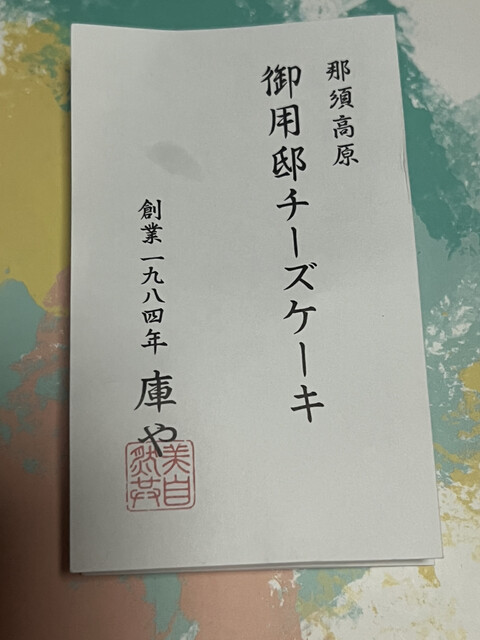 那須高原
御用邸チーズケーキ
創業一九八四年 庫や